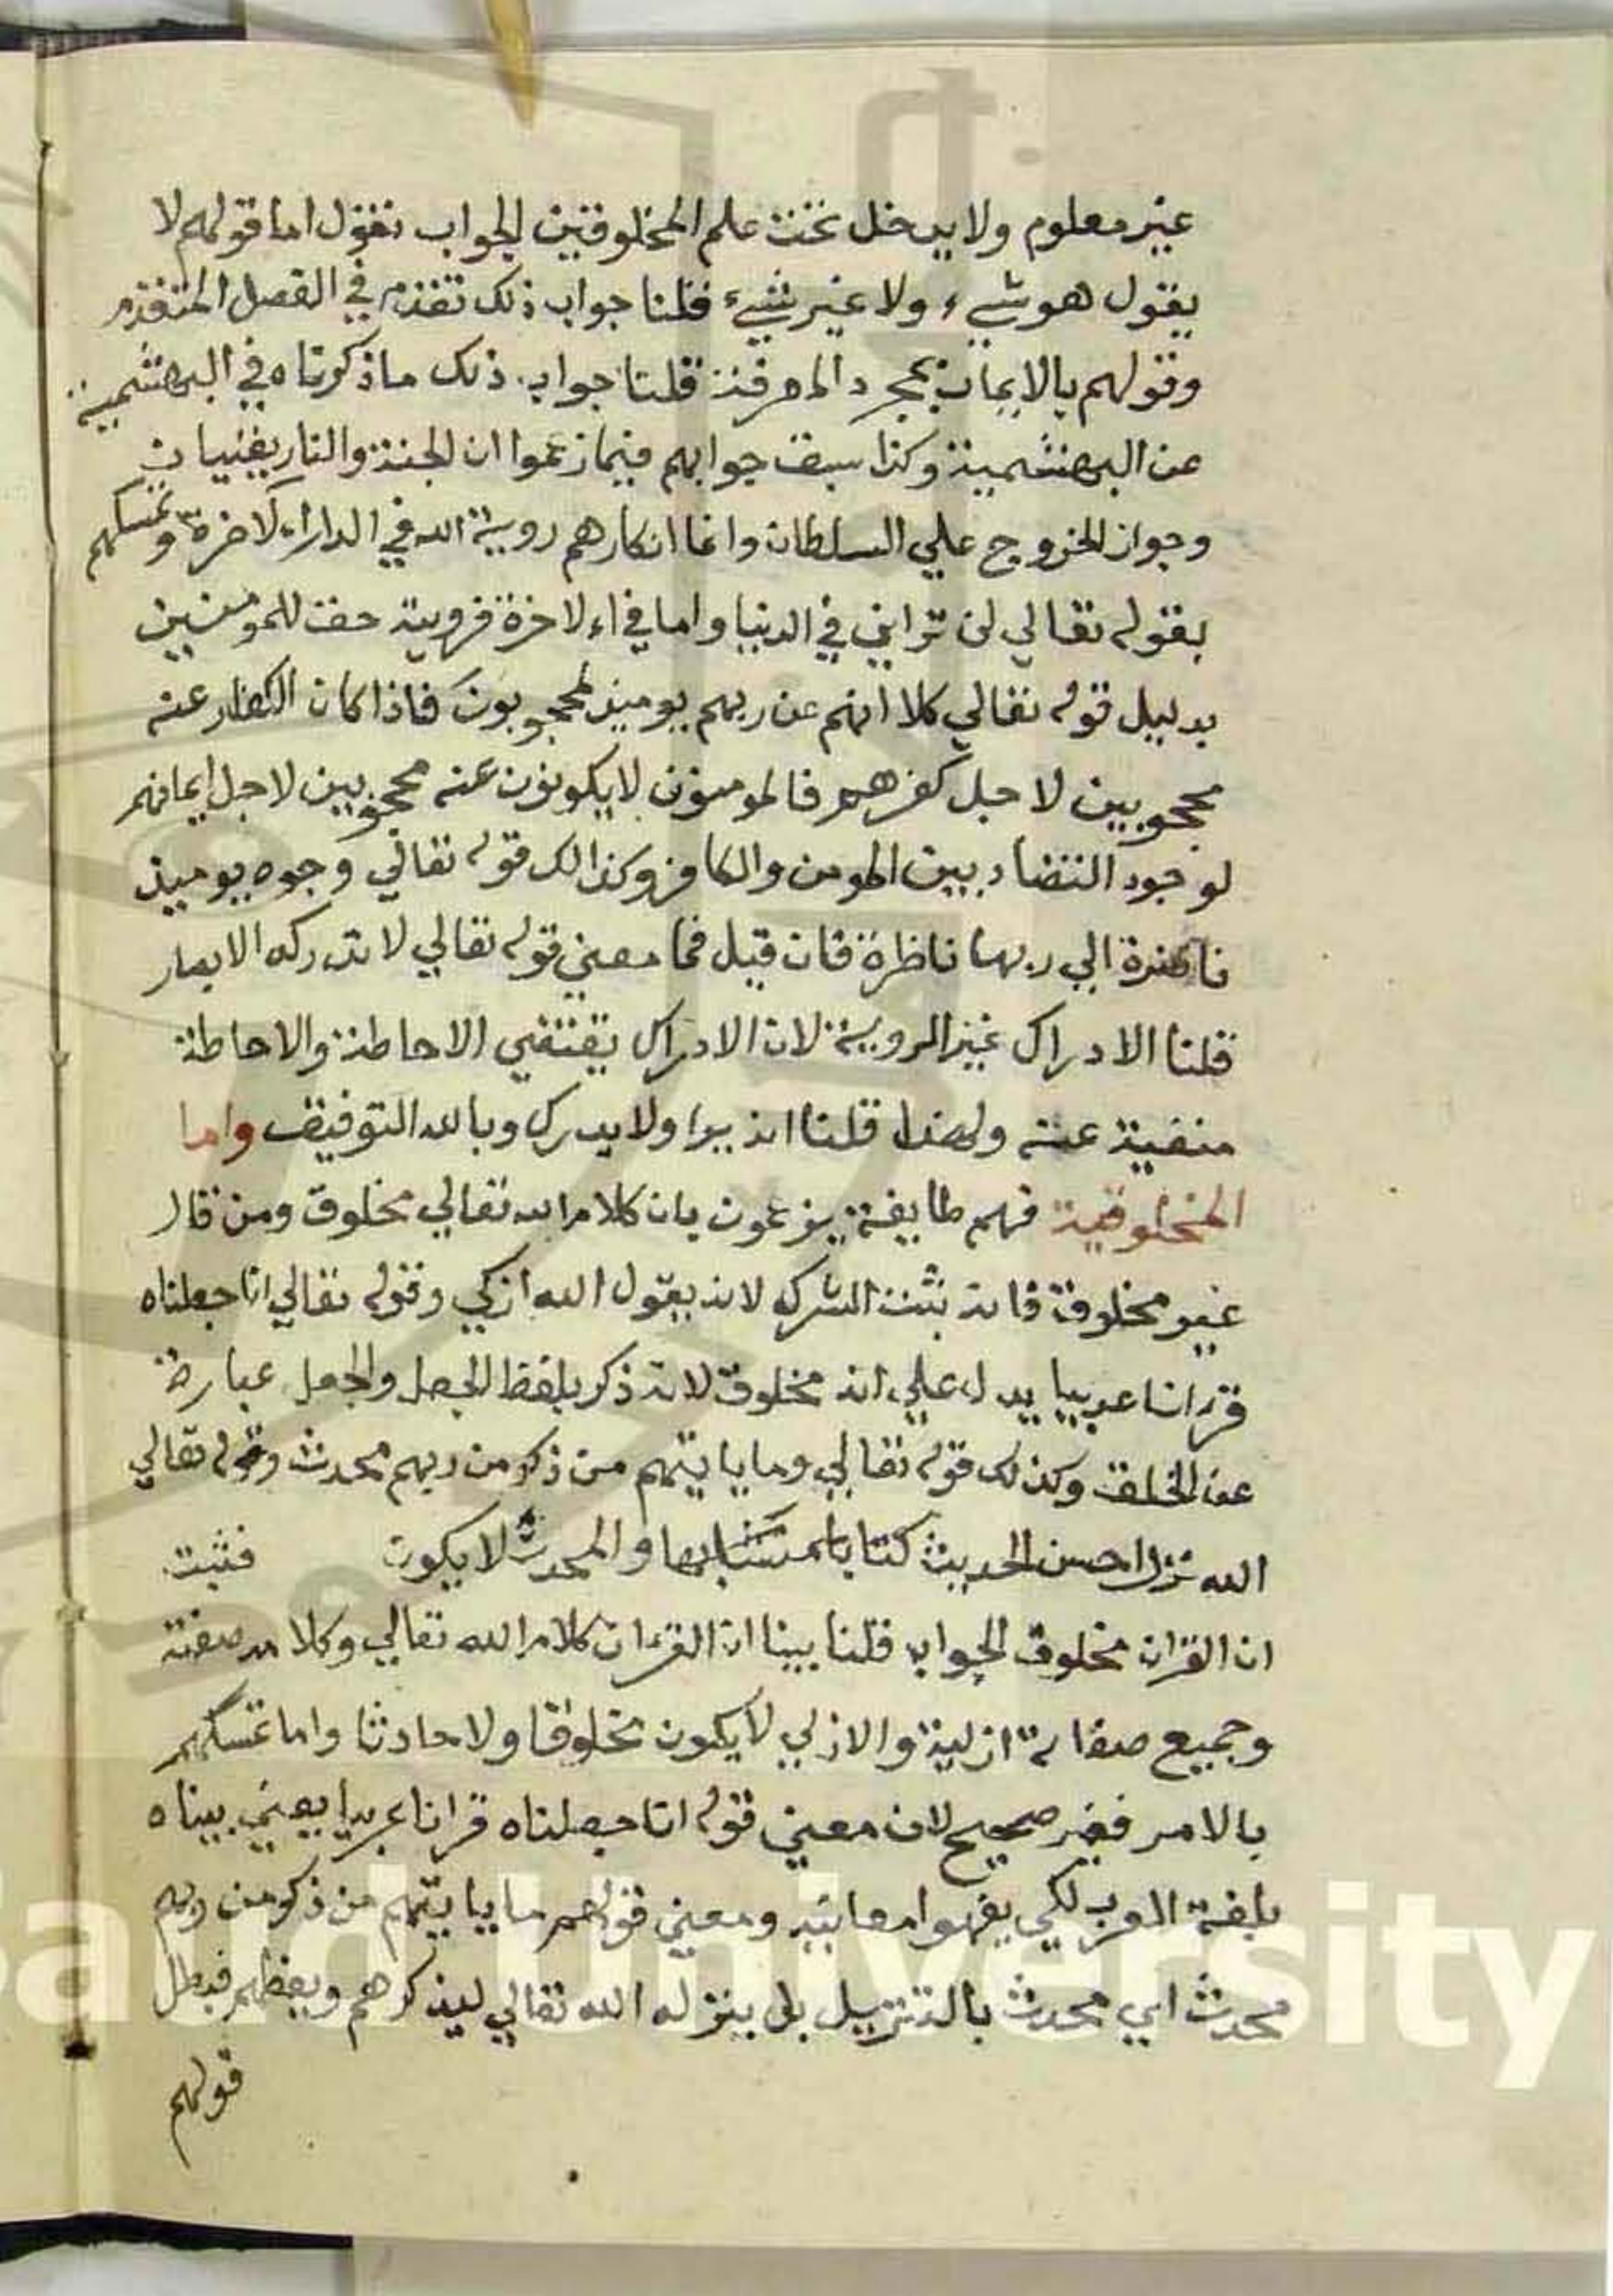 غير معلوم ولا يدخل تحت علم المخلوقين الجواب نقول اما قولهم لا
يقول هو شيء ولا غير شيء قلنا جواب ذلك تقدم في الفصل المتقدم
وقولهم بالايمان بمجرد المعرفة قلنا جواب ذلك ما ذكرناه في البهشمية
عن البهشمية وكذا سبق جوابهم فيما زعموا ان الجنة والنار يفنيان
وجواز الخروج علي السلطان وانما انكارهم روية الله في الدار الاخرة وتمسكهم
بقوله تعالي لن تراني في الدنيا واما في الاخرة فرويته حق للمومنين
بدليل قوله تعالي كلا انهم عن ربهم يوميذ لمحجوبون فاذا كان الكفار عنه
محجوبين لاجل كفرهم فالمومنون لا يكونون عنه محجوبين لاجل ايمانهم
لوجود التضاد بين المومن والكافر وكذالك قوله تعالي وجوه يوميذ
ناضرة الي ربها ناظرة فان قيل فما معني قوله تعالي لا تدركه الابصار
قلنا الادراك غير الروية لان الادراك يقتضي الاحاطة والاحاطة
منفية عنه ولهذا قلنا انه يرا ولا يدرك وبالله التوفيق واما
المخلوقية فهم طايفة يزعمون بان كلام الله تعالي مخلوق ومن قال
غير مخلوق فانه يثبت الشرك لانه يقول الله ازلي وقوله تعالي انا جعلناه
قرانا عربيا يدل علي انه مخلوق لانه ذكر بلفظ الجعل والجعل عبارة
عن الخلق وكذلك قوله تعالي وما ياتيهم من ذكر من ربهم محدث وقوله تعالي
الله نزل احسن الحديث كتابا متشابها والمحدث لا يكون فثبت
ان القران مخلوق الجواب قلنا بينا ان القران كلام الله تعالي وكلامه صفته
وجميع صفاته ازلية والازلي لا يكون مخلوقا ولا حادثا واما تمسكهم
بالامر فغير صحيح لان معني قوله انا جعلناه قرانا عربيا يعني بيناه
بلغة العرب لكي يفهوا معانيه ومعني قولهم ما ياتيهم من ذكر من ربهم
محدث اي محدث بالتنزيل بل ينزله الله تعالي ليذكرهم ويعظهم فبطل
قولهم
Saud University